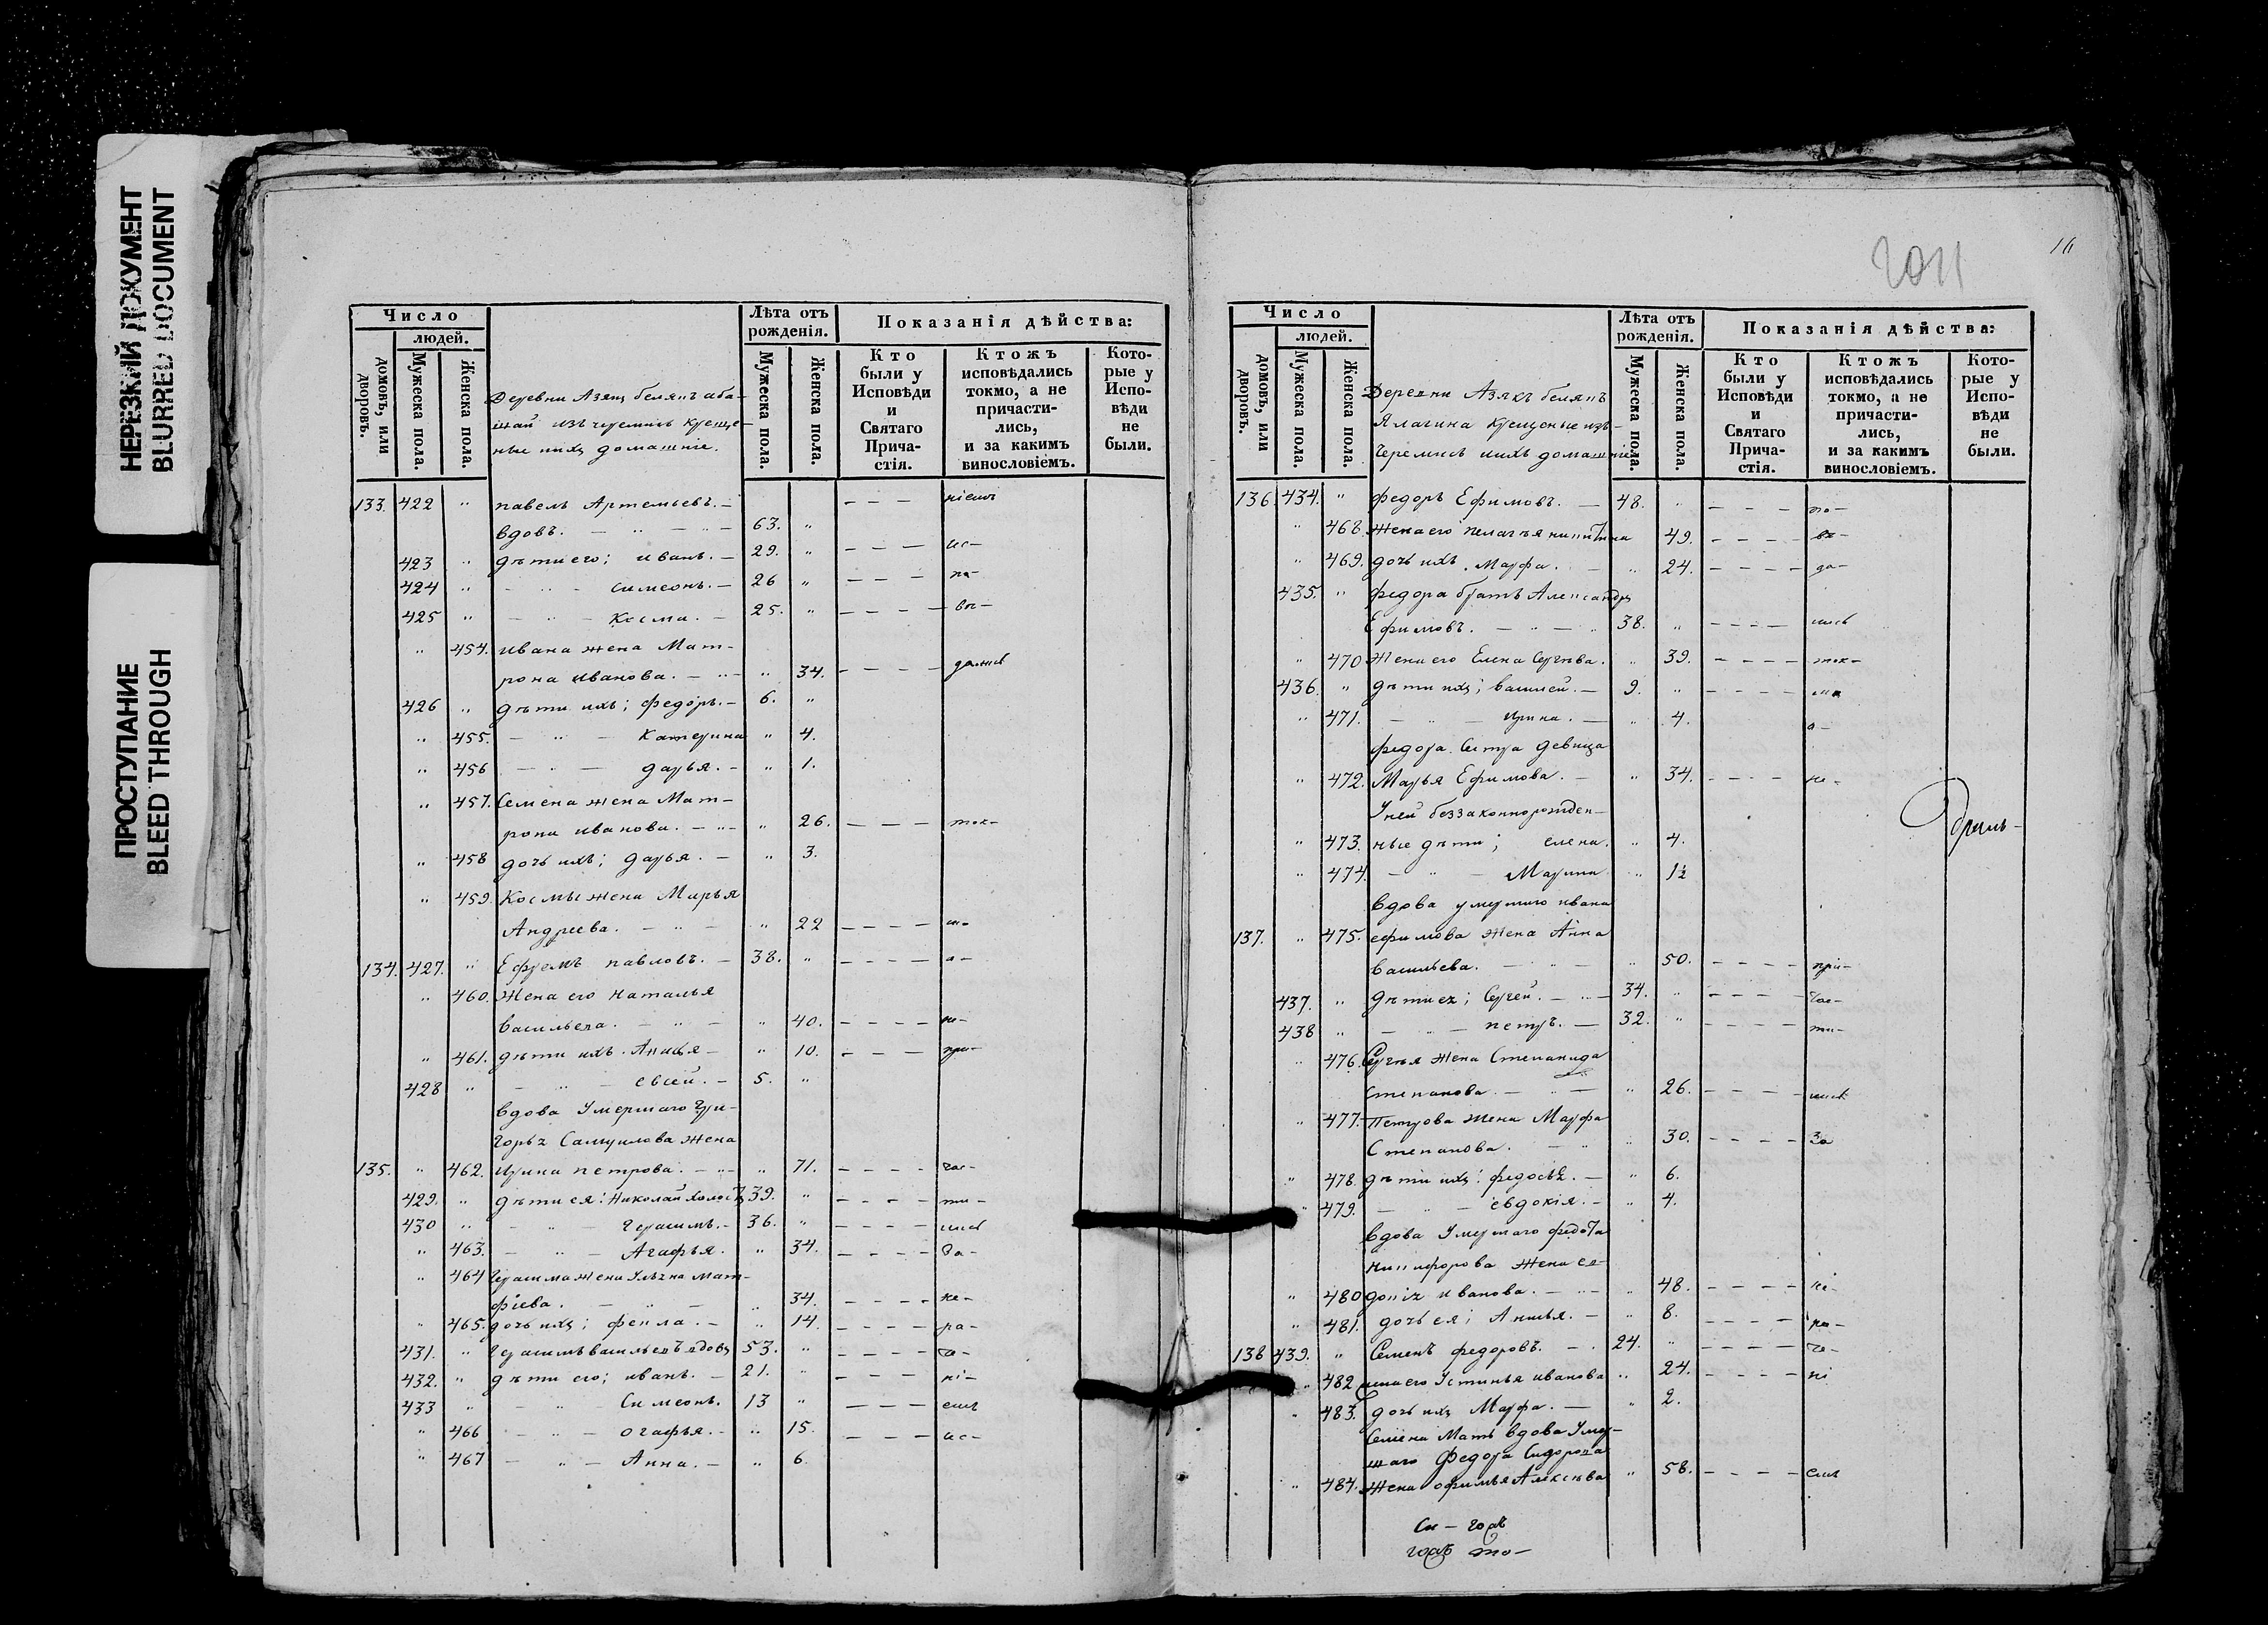 НЕРЕЗКИЙ ДОКУМЕНТ
BLURRED DOCUMENT
ПРОСТУПАНИЕ
BLEED THROUGH
Число
людей.
домовъ, или дворовъ.
Мужеска пола.
Женска пола.
Деревни Азякъ белякъ аба-
шай изъ черемисъ креще-
ные ихъ домашніе.
Лѣта отъ рожденія.
Мужеска пола.
Женска пола.
Показанія дѣйства:
Кто были у Исповѣди и Святаго Причастія.
Ктожъ исповѣдались токмо, а не причастились, и за какимъ винословіемъ.
Которые у Исповѣди не были.
133. 422 " павелъ Артемьевъ. — — — — ніемъ
вдовъ. — " — " — 63. "
423 " дѣти его; иванъ. — 29. " — — — ис-
424 " — " — симеонъ. — 26 " — — — по-
425 " — " — Косма. — 25. " — — — — вѣ-
" 454. ивана жена Мат-
рона иванова. — " — " 34. — — — — дались
426 " дѣти ихъ; федоръ. — 6. "
" 455. — " — Катерина " 4.
" 456 — " — дарья. — " 1.
" 457. Семена жена Мат-
рона иванова. — " — " 26. — — — ток-
" 458 дочь ихъ; дарья. — " 3.
" 459. Космы жена Марья
Андреева. — " — " 22 — — — — м-
134. 427. " Ефремъ павловъ. — 38. " — — — — а-
" 460. Жена его наталья
васильева. — " — " 40. — — — — не-
" 461. дѣти ихъ. — " 10. — — — — при-
428 " — " — евсей. — 5. "
вдова Умершаго Гри-
горья Самуилова жена
135. " 462. ирина петрова. — " — " 71. — — — — час-
429. " дѣти ея: николай холостъ 39. " — — — — ти-
430 " — " — герасимъ. — 36. " — — — — лись
" 463. — " — Агафья. " 34. — — — — За-
" 464 герасима жена Ульяна мат-
фіева. — " — " 34. — — — — не-
" 465. дочь ихъ; фекла. — " 14. — — — — ра-
431. " герасимъ васильевъ вдовъ 53. " — — — — че-
432. " дѣти его; иванъ. — 21. " — — — ні-
433 " — " — Симеонъ. 13 " — — — емъ
" 466 — " — огафья. — " 15. — — — ис-
" 467 — " — Анна. — " 6.
16
Число
людей.
домовъ, или дворовъ.
Мужеска пола.
Женска пола.
Деревни Азякъ белякъ
Ялагина крещеные изъ-
черемисъ ихъ домашніе
Лѣта отъ рожденія.
Мужеска пола.
Женска пола.
Показанія дѣйства:
Кто были у Исповѣди и Святаго Причастія.
Ктожъ исповѣдались токмо, а не причастились, и за какимъ винословіемъ.
Которые у Исповѣди не были.
136 434. " федоръ Ефимовъ. — 48. " — — — по-
" 468. Жена его пелагья никитина 49. — — — — вѣ-
" 469. дочь ихъ. марфа. — " 24. — — — — да-
435. " федора братъ Александръ
Ефимовъ. — " — " 38. " — — — — лись
" 470 Жена его Елена Сергѣева. " 39. — — — — ток-
436. " дѣти ихъ; василей. — 9. " — — — — мо
" 471. — " — ирина. — " 4. а-
федора Сестра девица
" 472. Марья Ефимова. — " 34. — — — — не-
У ней беззаконнорожден-
" 473. ные дѣти; елена. " 4.
" 474. — " — Марина " 1½
вдова умершаго ивана
137. " 475. ефимова жена Анна
васильева. — " — " 50. — — — — при-
437. " дѣти ея; Сергей. — " — 34. " — — — — час-
438 " — " — петръ. — 32. " — — — — ти-
" 476. Сергѣя жена Степанида
степанова. — " — " 26. — — — — лись
" 477. Петрова жена Марфа
Степанова. — " " 30. — — — — За
" 478. дѣти ихъ: — " 6.
" 479. — " — евдокія. — " 4.
вдова Умершаго федота
никифорова жена ев-
" 480 докія иванова. — " — " 48. — — — — не-
" 481. дочь ея; — " 8. — — — — ра-
138 439. " Семенъ федоровъ. — 24. " — — — — че-
" 482 жена его Устинья иванова " 24. — — — — ні
" 483. дочь ихъ Марфа. — " 2.
Семена Мать вдова Умер-
шаго Федора Сидорова
" 484. Жена офимья Алексѣева " 58. — — — — емъ